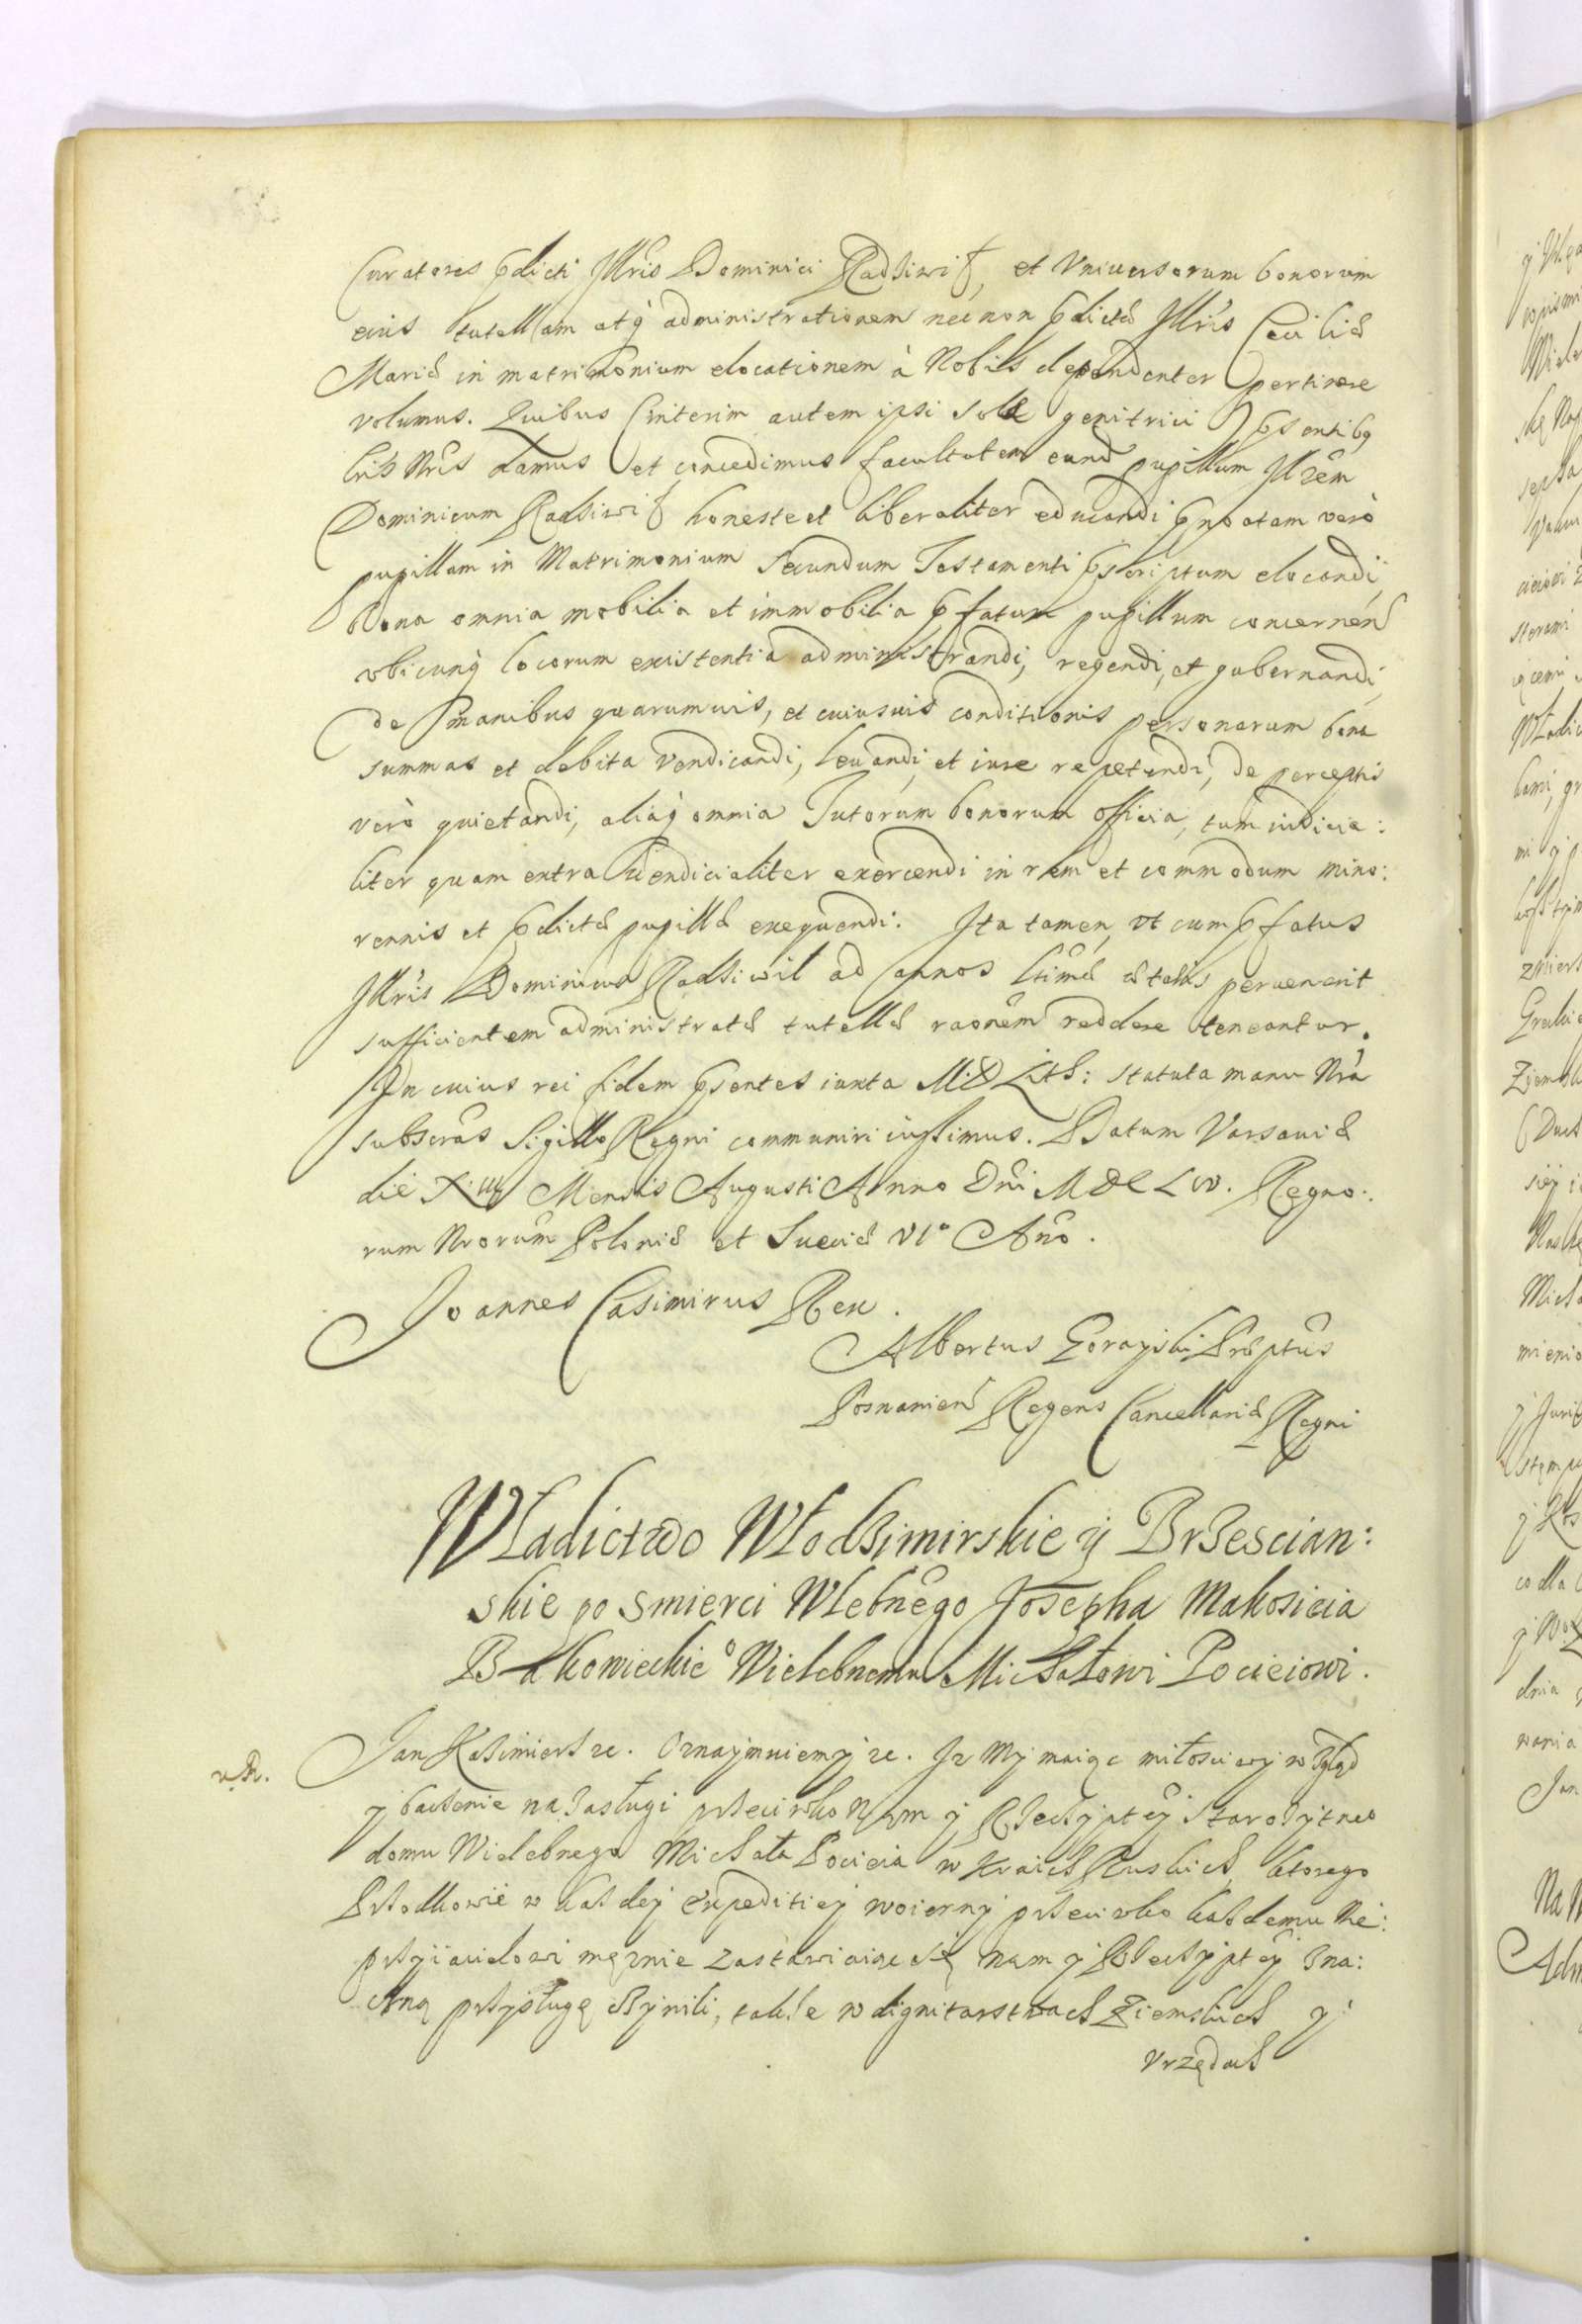 Curatores pdicti Illris Dominici Radziwił, et Vniuersorum bonorum
eius tutellam atq administrationem necnon pdictæ Illris Ceciliæ
Mariæ in matrimonium elocationem à Nobis dependenter pertinere
volumus. Quibus interim autem ipsi solæ genitrici psentibq
lris Nris damus et concedimus facultatem eund pupillum Illrem
Dominicum Radziwił honeste et liberaliter educandi pnotatam verò
pupillam in Matrimonium secundum Testamenti pscriptum elocandi,
Bona omnia mobilia et immobilia pfatum pupillum concernen
vbicunq locorum existentia administrandi, regendi, et gubernandi,
de manibus quarumuis, et cuiusuis conditionis personarum bona
summas et debita vendicandi, leuandi, et iure repetendi, de perceptis
verò quietandi, aliaq omnia Tutorum bonorum officia, tum iudicia:
liter quam extra iudicialiter exercendi in rem et commodum mino:
rennis et pdictæ pupillæ exequendi. Ita tamen, vt cum pfatus
Illris Dominicus Radziwil ad annos ltimæ ætatis peruenerit
sufficientem administratæ tutellæ raonem reddere teneantur.
In cuius rei fidem psentes iuxta M.D. Lith: statuta manu Nra
subscras Sigillo Regni communiri iussimus. Datum Varsauiæ
die XIIII Mensis Augusti Anno Dni MDCLIV. Regno:
rum Nrorum Poloniæ et Sueciæ VIo Ano.
Joannes Casimirus Rex.
Albertus Gorayski Præptus
Posnanien Regens Cancellariæ Regni
Władictwo Włodzimirskie y Brzescian:
skie po smierci Wlebnego Josepha Mokosieia
Bakowieckieo Wielebnemu Michałowi Pocieiowi.
v. R. Jan Kazimierz rc. Oznaymuiemy rc. Iz My maiąc miłosciwy wzgląd
y baczenie na zasługi przeciwko Nam y Rzeczyptey starozytneo
domu Wielebnego Michała Pocieia w Kraich Ruskich, ktorego
Przodkowie w kazdey Expeditiey woienny przeciwko kazdemu Ne:
przyiacielowi męznie zastawiaiąc się nam y Rzeczyptey zna:
czną przysługę czynili, takze w dignitarstwach Ziemskich y
vrzędach